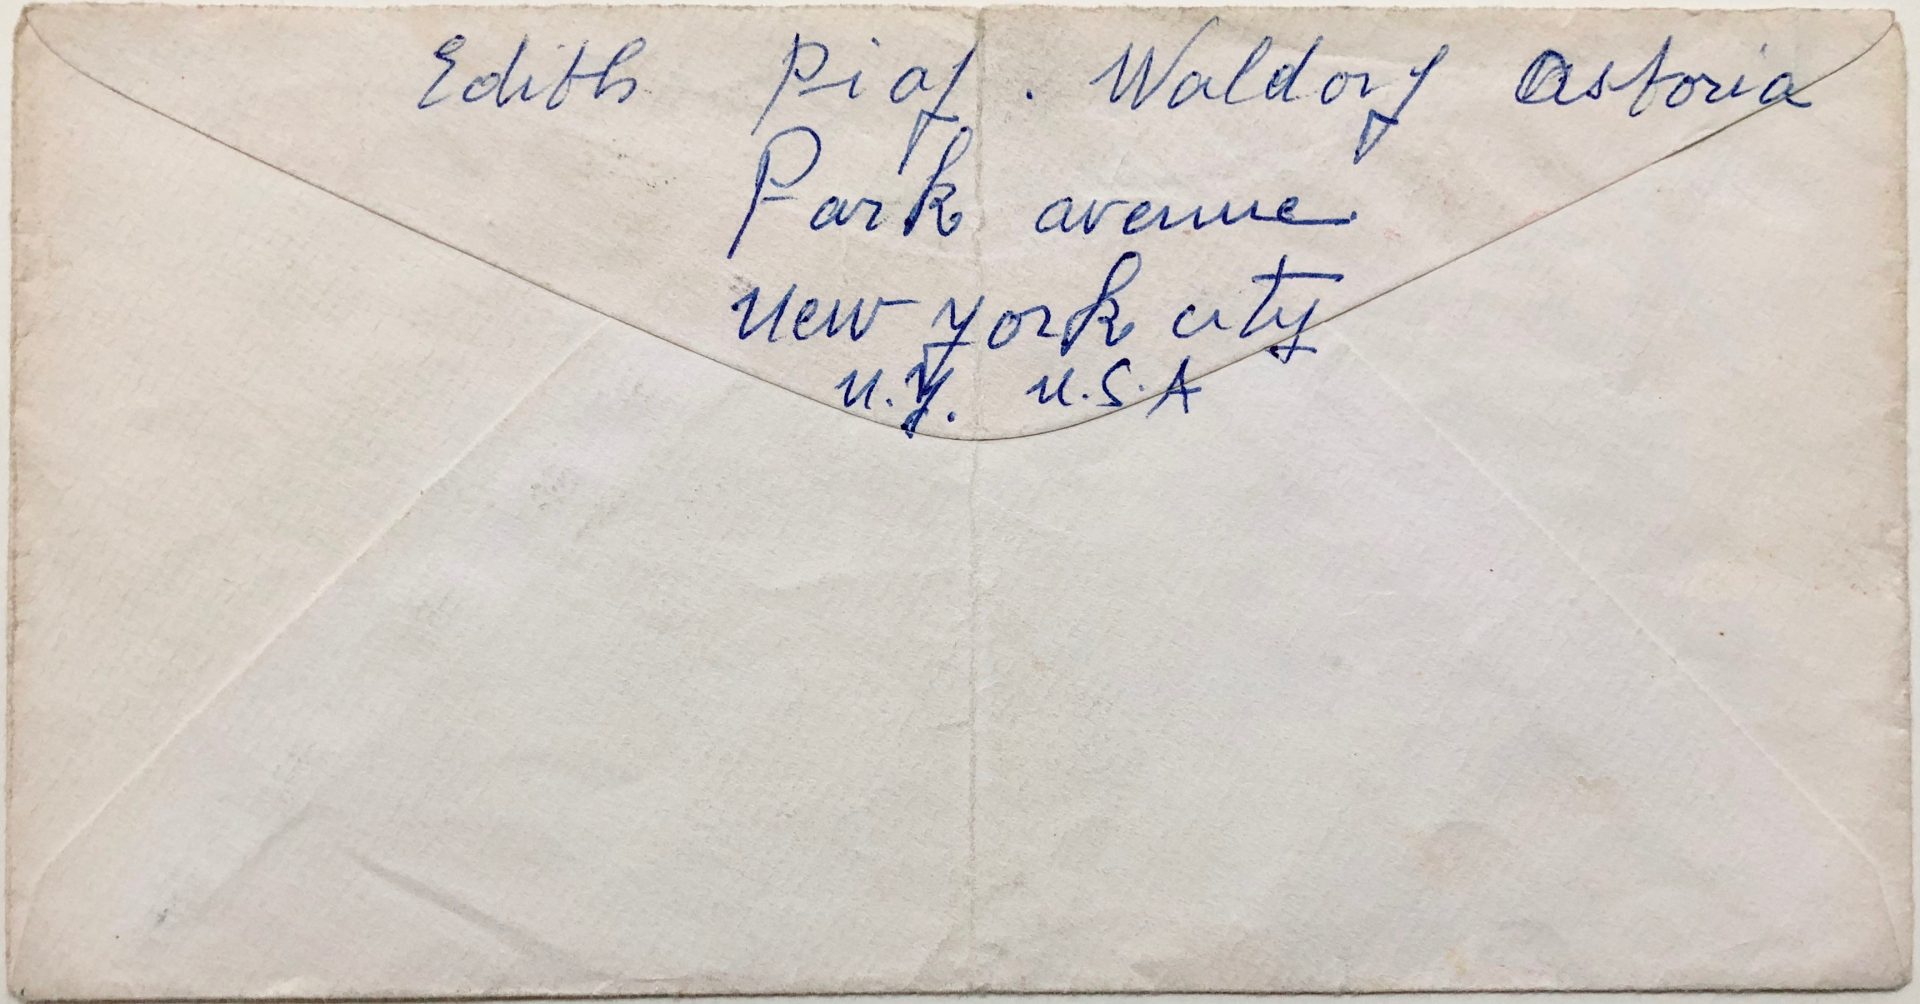 Edith Piaf . Waldorf Astoria
Park avenue
New york city
N.Y. U.S.A